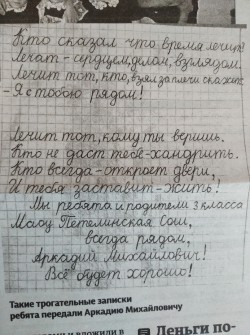 Кто сказал что время лечит?
Лечат - сердцем, делом, взглядом.
Лечит тот, кто, взяв за плечи скажет:
- Я с тобою рядом!
Лечит тот, кому ты веришь.
Кто не даст тебе - хандрить.
Кто всегда - откроет двери,
И тебя заставит - жить!
Мы ребята и родители 3 класса
Маоу Петелинская Сош,
всегда рядом,
Аркадий Михайлович!
Всё будет хорошо!
Такие трогательные записки
ребята передали Аркадию Михайловичу
и вложили в
Деньги по-